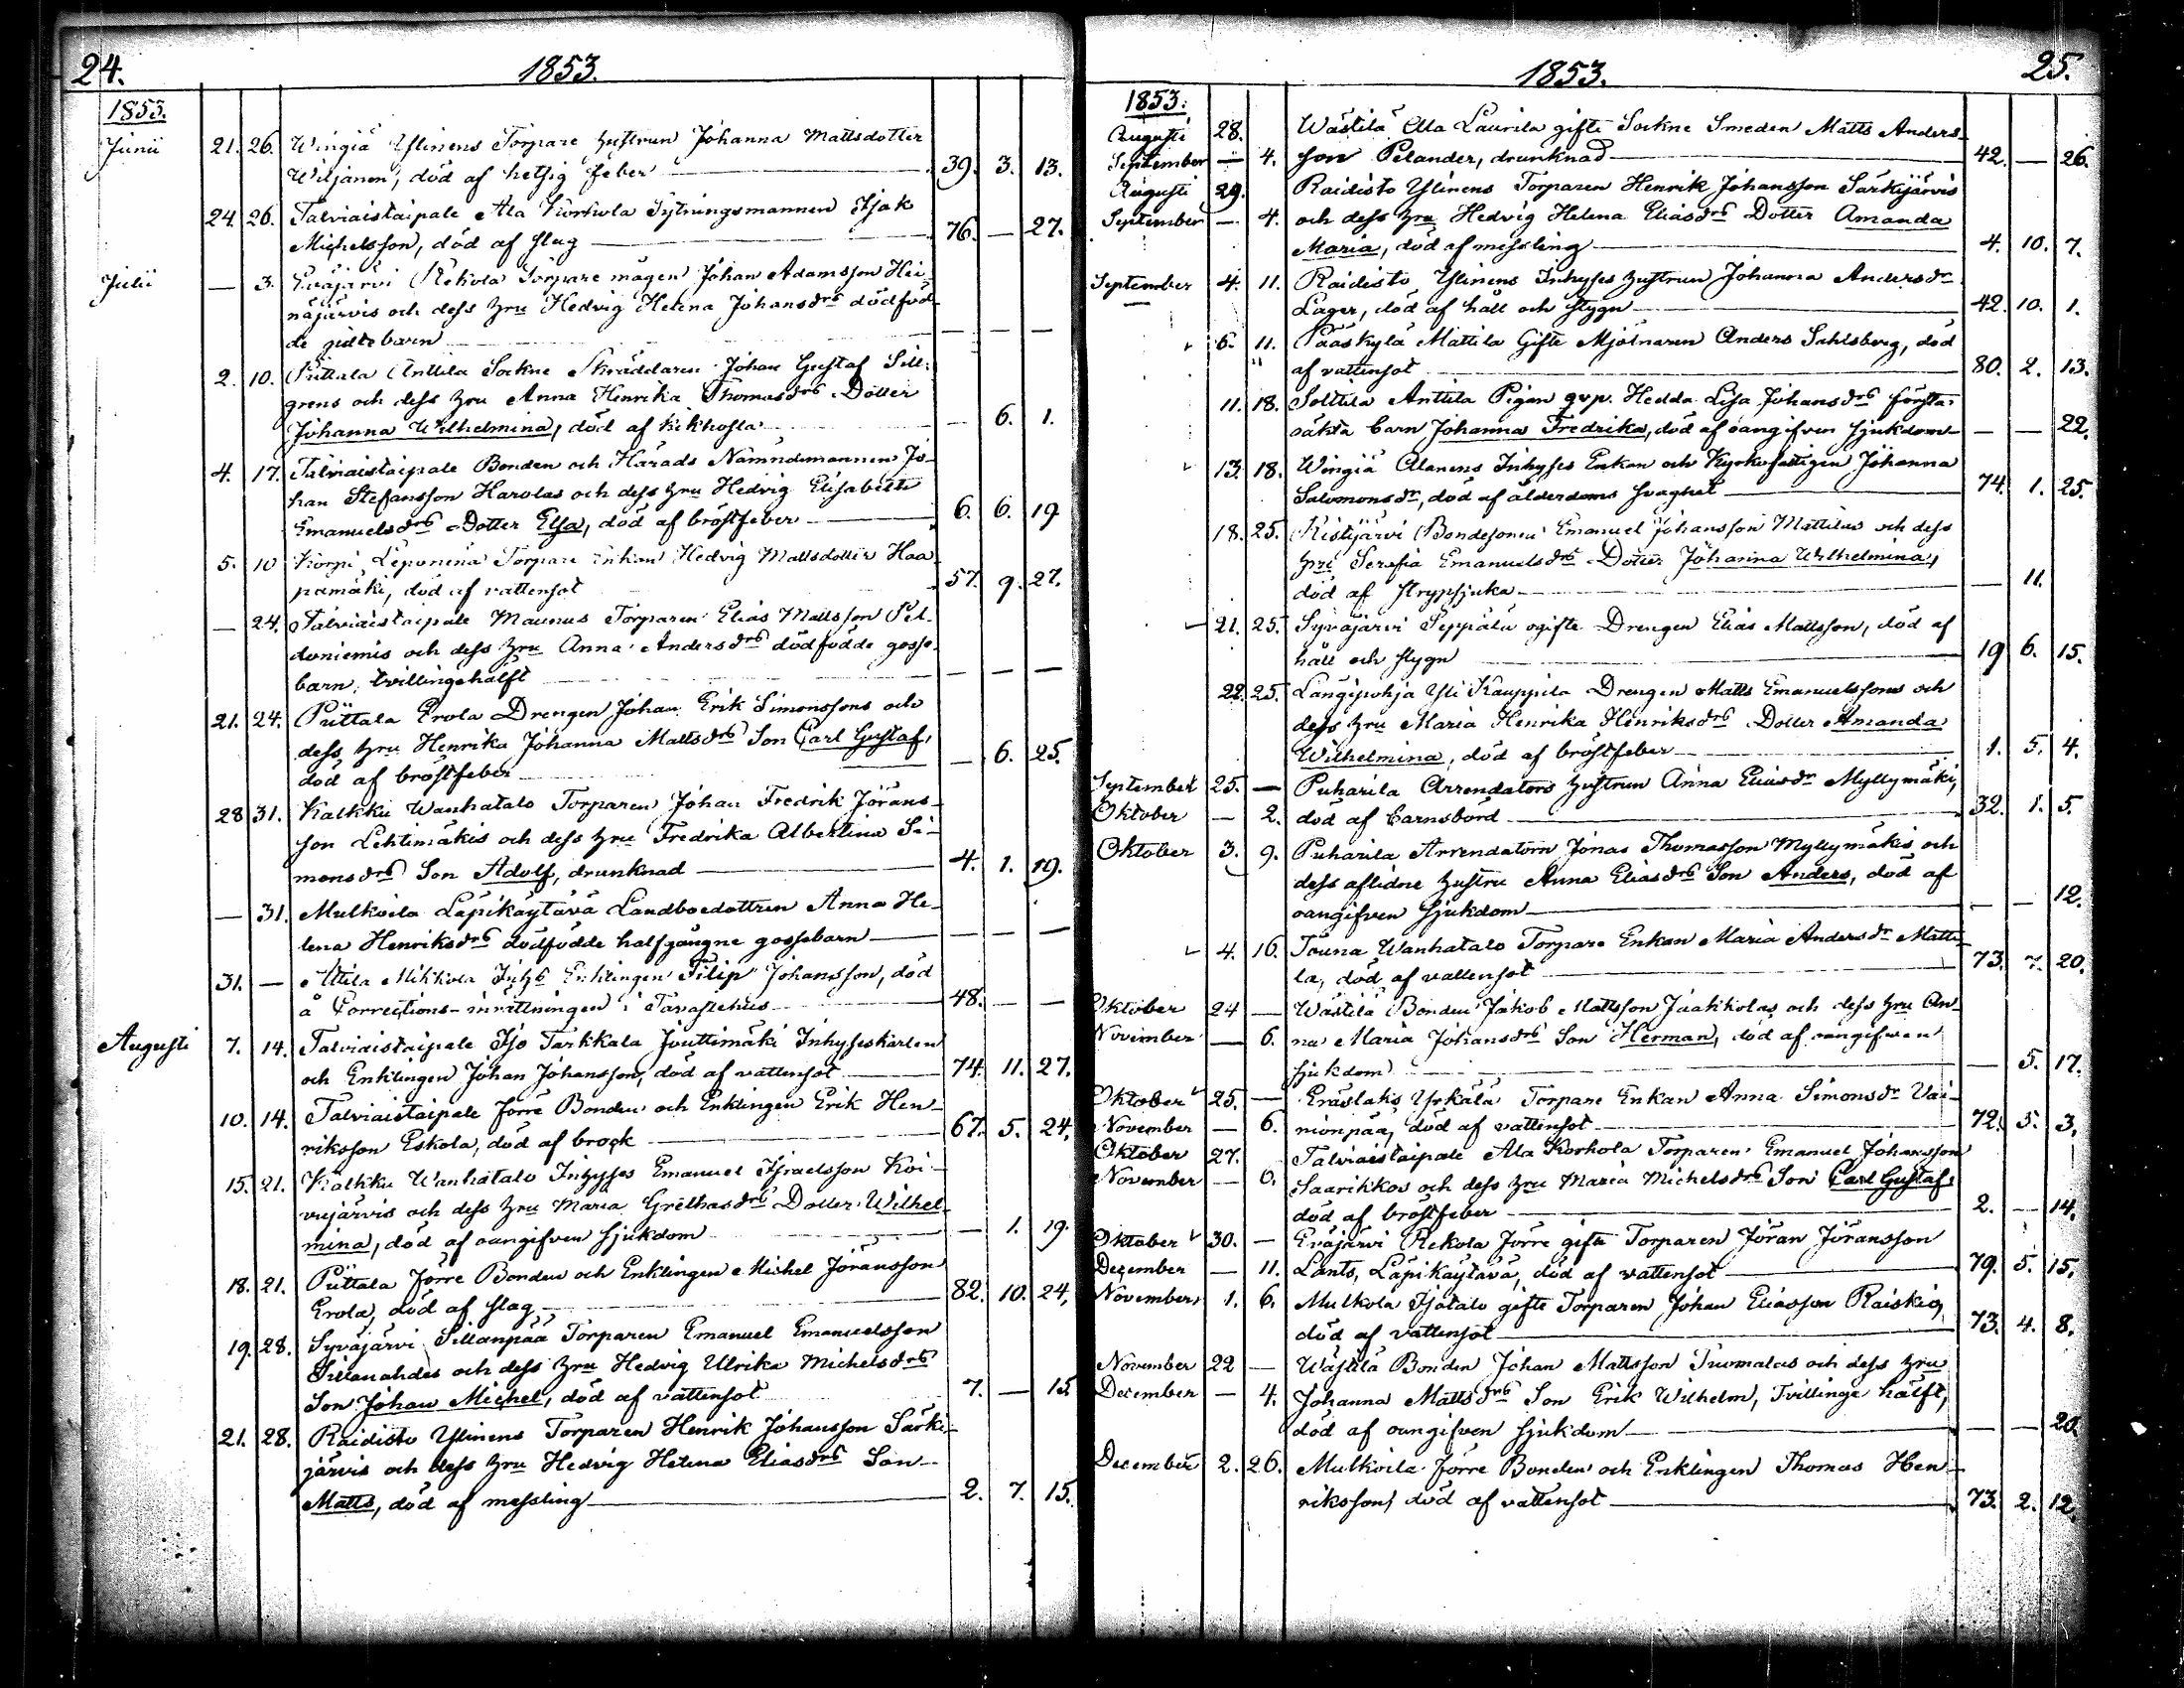 24. 1853.
1853.
Junii 21. 26. Wingiä Ylinens Torpare hustrun Johanna Mattsdotter
Wiljanen, död af hetsig feber 39. 3. 13.
24. 26. Talviaistaipale Ala Korhola Sytningsmannen Isak
Michelsson, död af slag 76. — 27.
Julii — 3. Eräjärvi Rekola Torpare mågen Johan Adamsson Hei-
näjärvis och dess hru Hedvig Helena Johansdrs dödföd-
de gossebarn — — —
2. 10. Puttala Anttila Sockne Skräddaren Johan Gustaf Sill-
grens och dess hru Anna Henrika Thomasdrs Dotter
Johanna Wilhelmina, död af kikhosta — 6. 1.
4. 17. Talviaistaipale Bonden och Härads Nämndemannen Jo-
han Stefansson Harolas och dess hru Hedvig Elisabeth
Emanuelsdrs Dotter Elsa, död af bröstfeber 6. 6. 19
5. 10 Korpi Leponena Torpare Enkan Hedvig Mattsdotter Haa-
pamäki, död af vattensot 57. 9. 27.
— 24. Talviaistaipale Maunus Torparen Elias Mattsson Pel-
doniemis och dess hru Anna Andersdrs dödfödde gosse-
barn, tvillingehälft — — —
21. 24. Puttala Erola Drengen Johan Erik Simonssons och
dess hru Henrika Johanna Mattsdrs Son Carl Gustaf,
död af bröstfeber — 6. 25.
28 31. Kalkku Wanhatalo Torparen Johan Fredrik Jörans-
son Lehtimäkis och dess hru Fredrika Albertina Si-
monsdrs Son Adolf, drunknad 4. 1. 19.
— 31. Mulkoila Läpikäytävä Landboedottren Anna He-
lena Henriksdrs dödfödde halfgångne gossebarn — — —
31. — Attila Mikkola Inhs Enklingen Filip Johansson, död
å Corrections-inrättningen i Tavastehus 48. — —
Augusti 7. 14. Talviaistaipale Iso Tarkkala Jouttimäki Inhyseskarlen
och Enklingen Johan Johansson, död af vattensot 74. 11. 27.
10. 14. Talviaistaipale förre Bonden och Enklingen Erik Hen-
riksson Eskola, död af brock 67. 5. 24.
15. 21. Kalkku Wanhatalo Inhyses Emanuel Israelsson Koi-
vujärvis och dess hru Maria Grelhasdrs Dotter Wilhel-
mina, död af oangifven sjukdom — 1. 19.
18. 21. Puttala förre Bonden och Enklingen Michel Jöransson
Erola, död af slag 82. 10. 24.
19. 28. Syväjärvi Sillanpää Torparen Emanuel Emanuelsson
Sillanahdes och dess hru Hedvig Ulrika Michelsdrs
Son Johan Michel, död af vattensot 7. — 15.
21. 28. Raidisto Ylinens Torparen Henrik Johansson Särki-
järvis och dess hru Hedvig Helena Eliasdrs Son
Matts, död af messling 2. 7. 15.
1853. 25.
1853.
Augusti 28. Wästilä Ala Laurila gifte Sockne Smeden Matts Anders-
September — 4. son Pelander, drunknad 42. — 26.
Augusti 29. Raidisto Ylinens Torparen Henrik Johansson Särkijärvis
September — 4. och dess hru Hedvig Helena Eliasdrs Dotter Amanda
Maria, död af messling 4. 10. 7.
September 4. 11. Raidisto Ylinens Inhyses hustrun Johanna Andersdr
Lager, död af håll och stygn 42. 10. 1.
6. 11. Pääskylä Mattila Gifte Mjölnaren Anders Sahlsberg, död
af vattensot 80. 2. 13.
11. 18. Solttila Anttila Pigan qvp. Hedda Lisa Johansdrs första
oäkta barn Johanna Fredrika, död af oangifven sjukdom — — 22.
13. 18. Wingiä Alanens Inhyses Enkan och Kyrkofattigen Johanna
Salomonsdr, död af ålderdoms svaghet 74. 1. 25.
18. 25. Ristijärvi Bondesonen Emanuel Johansson Mattilas och dess
hru Serafia Emanuelsdrs Dotter Johanna Wilhelmina,
död af strypsjuka — 11.
21. 25. Syväjärvi Seppälä ogifte Drengen Elias Mattsson, död af
håll och stygn 19 6. 15.
22. 25. Längipohja Yli Kauppila Drengen Matts Emanuelssons och
dess hru Maria Henrika Henriksdrs Dotter Amanda
Wilhelmina, död af bröstfeber 1. 5. 4.
September 25. — Puharila Arrendators hustrun Anna Eliasdr Myllymäki,
Oktober — 2. död af barnsbörd 32. 1. 5.
Oktober 3. 9. Puharila Arrendatorn Jonas Thomasson Myllymäkis och
dess aflidne hustru Anna Eliasdrs Son Anders, död af
oangifven sjukdom — — 12.
4. 16. Touna Wanhatalo Torpare Enkan Maria Andersdr Matti-
la, död af vattensot 73. 7. 20.
Oktober 24 — Wästilä Bonden Jakob Mattsson Jaakkolas och dess hru An-
November — 6. na Maria Johansdrs Son Herman, död af oangifven
sjukdom — 5. 17.
Oktober 25. — Eräslaks Yrkälä Torpare Enkan Anna Simonsdr Vai-
November — 6. nionpää, död af vattensot 72. 5. 3.
Oktober 27. Talviaistaipale Ala Korhola Torparen Emanuel Johansson
November — 6. Saarikkos och dess hru Maria Michelsdrs Son Carl Gustaf,
död af bröstfeber 2. — 14.
Oktober 30. — Eräjärvi Rekola förre gifte Torparen Jöran Jöransson
December — 11. Lants, Läpikäytävä, död af vattensot 79. 5. 15.
November 1. 6. Mulkola Isotalo gifte Torparen Johan Eliasson Raiskio,
död af vattensot 73. 4. 8.
November 22 — Wästilä Bonden Johan Mattsson Tuomalas och dess hru
December — 4. Johanna Mattsdrs Son Erik Wilhelm, Tvillinge hälft,
död af oangifven sjukdom — — 20.
December 2. 26. Mulkoila förre Bonden och Enklingen Thomas Hen-
riksson, död af vattensot 73. 2. 12.